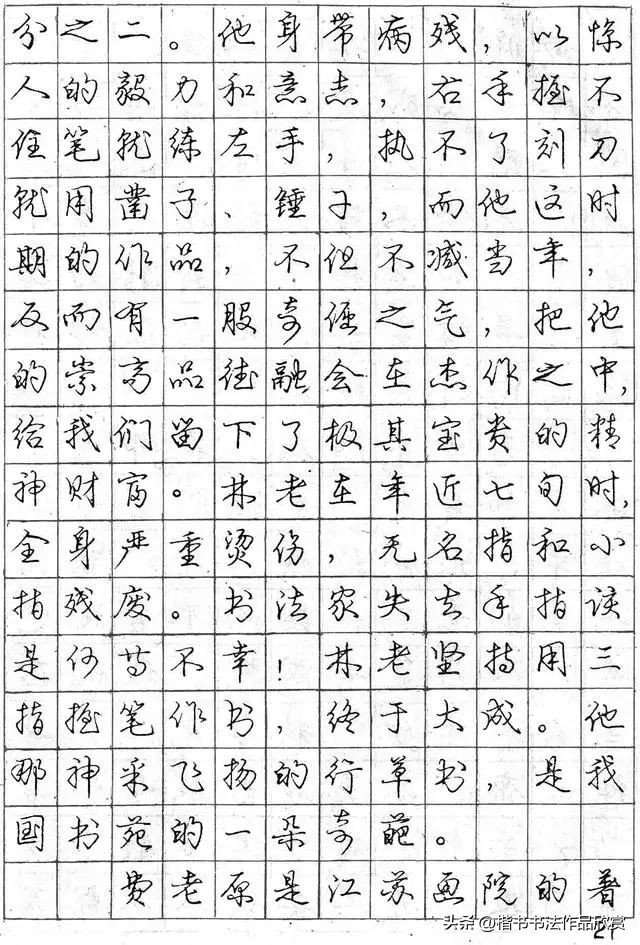 分之二。他身带病残，以惊
人的毅力和意志，右手握不
住笔就练左手，执不了刻刀
就用凿子、锤子，而他这时
期的作品，不但不减当年，
反而有一股奇倔之气，把他
的崇高品德融会在杰作之中，
给我们留下了极其宝贵的精
神财富。林老在年近七旬时，
全身严重烫伤，无名指和小
指残废。书法家失去手指该
是何等不幸！林老坚持用三
指握笔作书，终于大成。他
那神采飞扬的行草书，是我
国书苑的一朵奇葩。
费老原是江苏画院的著
头条@楷书书法作品欣赏
21